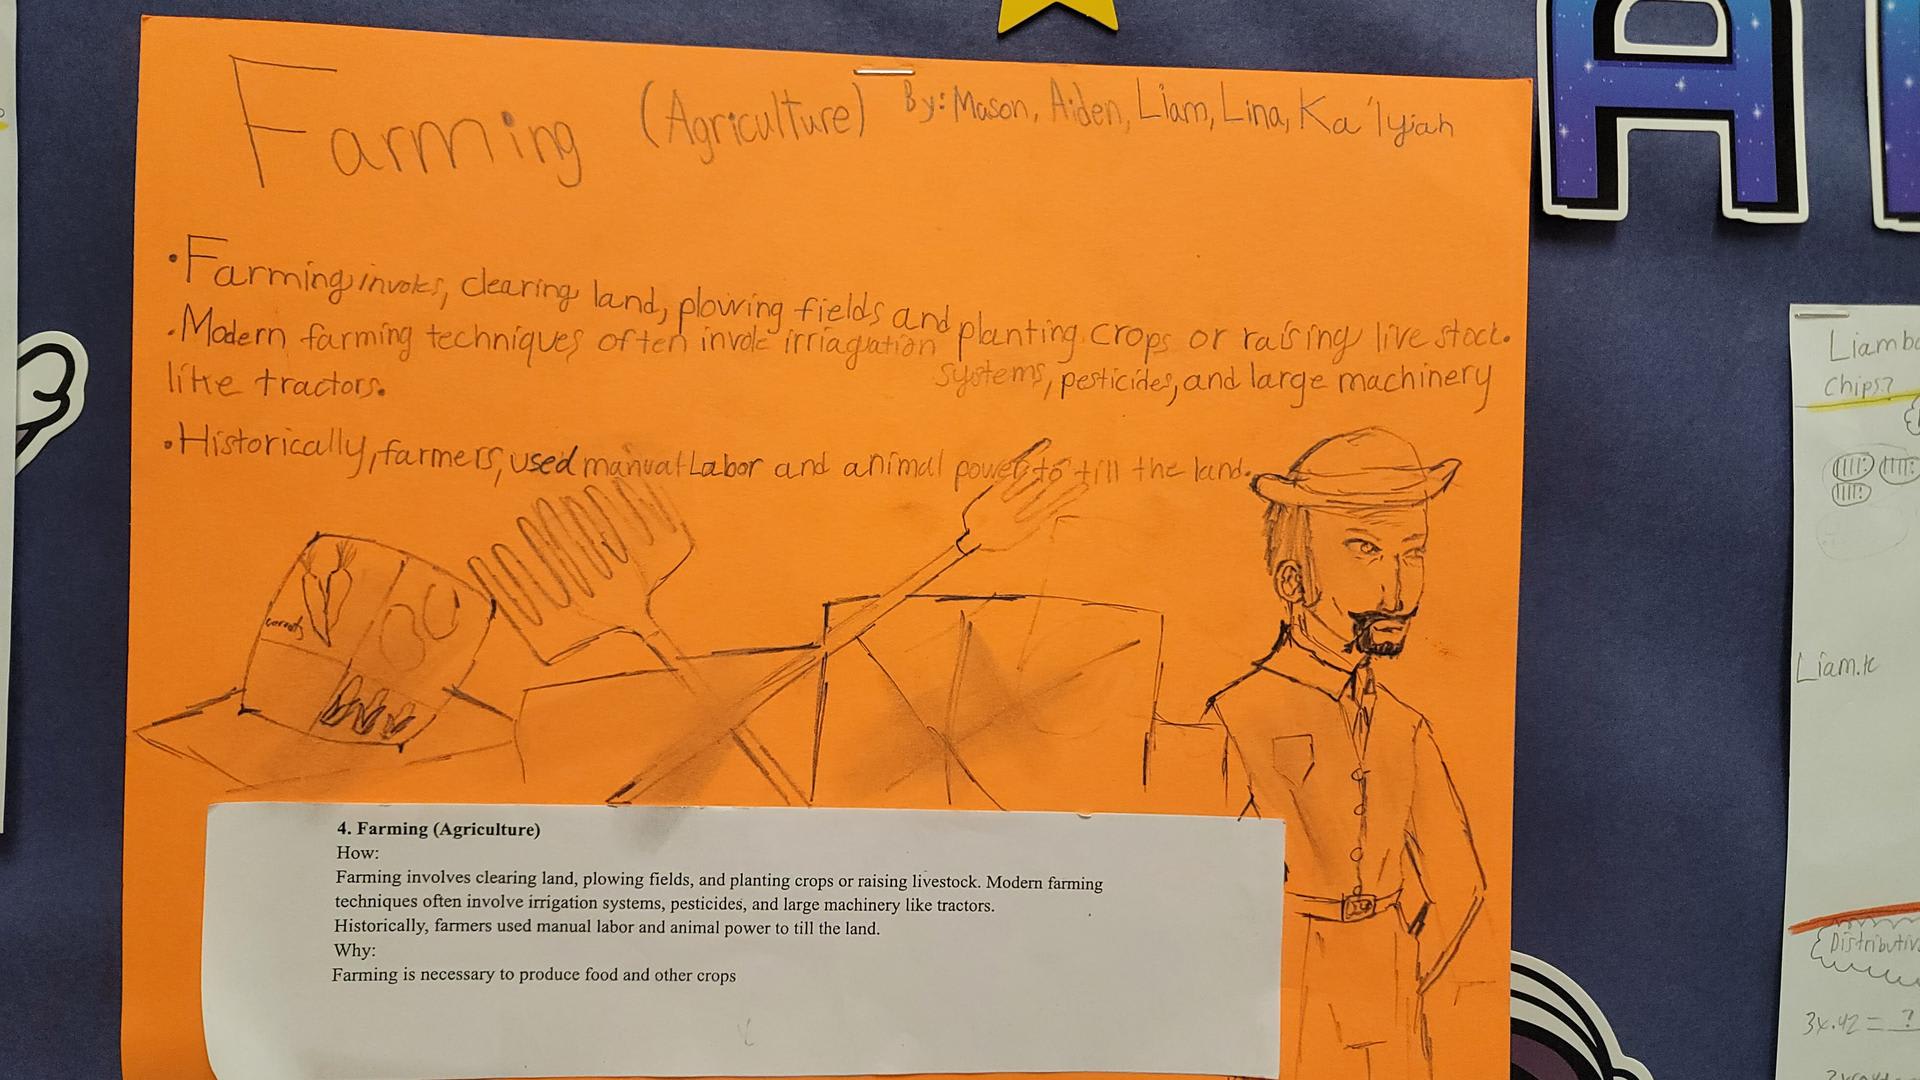 Farming (Agriculture) By: Mason, Aiden, Liam, Lina, Ka'lyiah
•Farming involes, clearing land, plowing fields and planting crops or raising live stock.
•Modern farming techniques often invole irriagation systems, pesticides, and large machinery
like tractors.
•Historically, farmers, used manual Labor and animal power to till the land.
carrots
4. Farming (Agriculture)
How:
Farming involves clearing land, plowing fields, and planting crops or raising livestock. Modern farming
techniques often involve irrigation systems, pesticides, and large machinery like tractors.
Historically, farmers used manual labor and animal power to till the land.
Why:
Farming is necessary to produce food and other crops
A
Chips?
Liam.k
3x.42 = ?